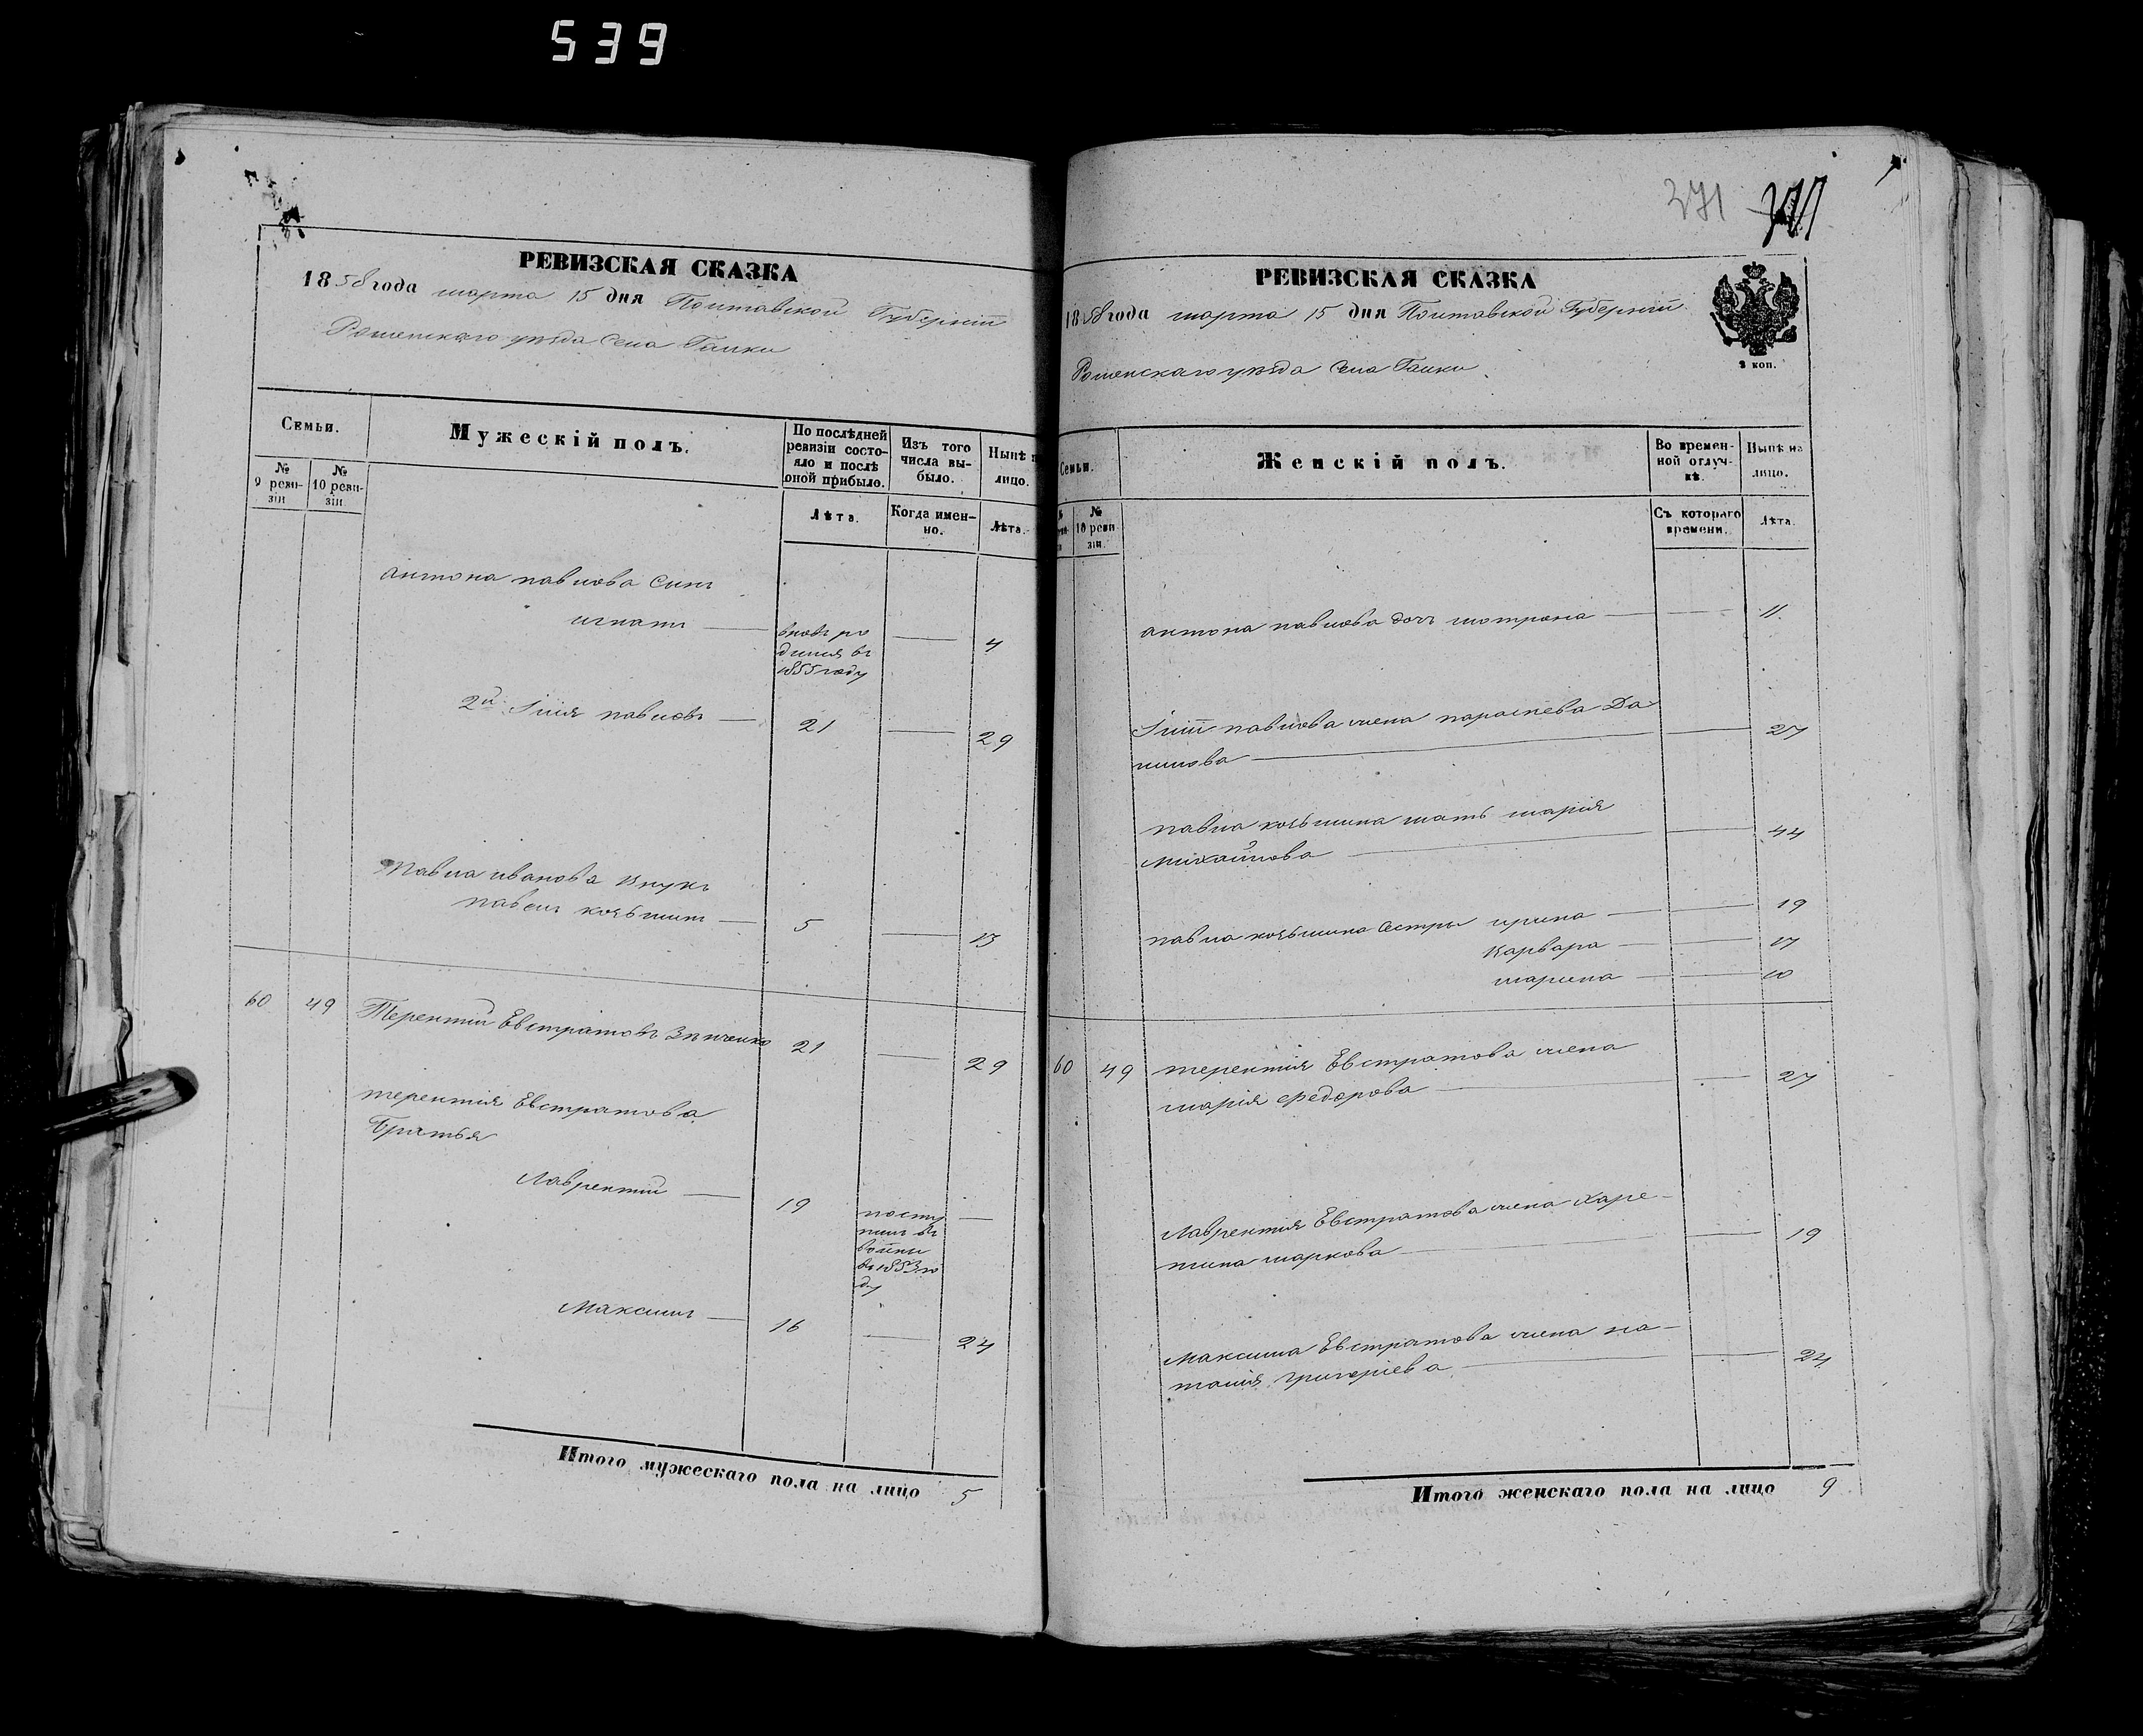 539
РЕВИЗСКАЯ СКАЗКА
1858 года марта 15 дня Полтавской Губерніи
Роменскаго уѣзда Села Галки
Семьи.
Мужескій полъ.
По послѣдней ревизіи состояло и послѣ оной прибыло.
Изъ того числа выбыло.
Нынѣ
лицо.
№ 9 ревизіи
№ 10 ревизіи.
Лѣта.
Когда именно.
Лѣта.
антона павлова Сынъ
игнатъ — — 4
вновь ро
дился въ
1855 году
2й Илія павловъ — 21 — 29
Павла иванова внукъ
павелъ козьминъ — 5 — 13
60 49 Терентій Евстратовъ 21 — 29
терентія Евстратова
братья
Лаврентій — 19 —
посту
пилъ въ
1853 го
ду
Максимъ — 16 — 24
Итого мужескаго пола на лицо 5
271
РЕВИЗСКАЯ СКАЗКА
1858 года марта 15 дня Полтавской Губерніи
Роменскаго уѣзда Села Галки
2 коп.
Семьи.
Женскій полъ.
Во временной отлучкѣ.
Нынѣ на лицо.
№ 10 ревизіи.
Съ котораго времени.
Лѣта.
антона павлова дочь мотрона — — 11
Иліи павлова жена параскева Да
нилова — — 27
павла козьмина мать марія
Михайлова — — 44
павла козьмина сестры ирина — — 19
Варвара — — 17
марина — — 10
60 49 терентія Евстратова жена
марія Федорова — — 27
Лаврентія Евстратова жена Харе-
тина маркова — — 19
Максима Евстратова жена на-
талія григоріева — — 24
Итого женскаго пола на лицо 9